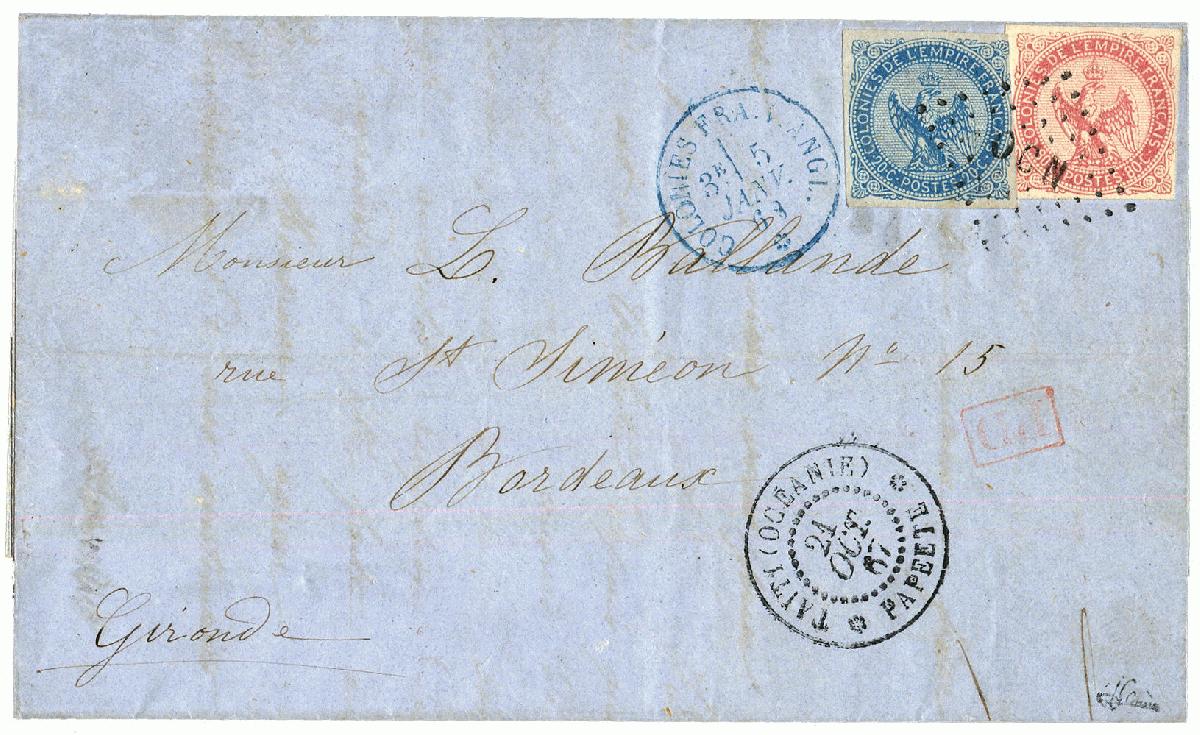 COLONIES DE L'EMPIRE FRANÇAIS
20C. POSTES 20C.
COLONIES DE L'EMPIRE FRANÇAIS
POSTES 80C.
OCN
COLONIES FRA. V. ANGL.
3E 5
JANV.
68
Monsieur L. Ballande
rue St Siméon No 15
Bordeaux
Gironde
TAITI (OCEANIE)
PAPEETE
24
OCT.
67